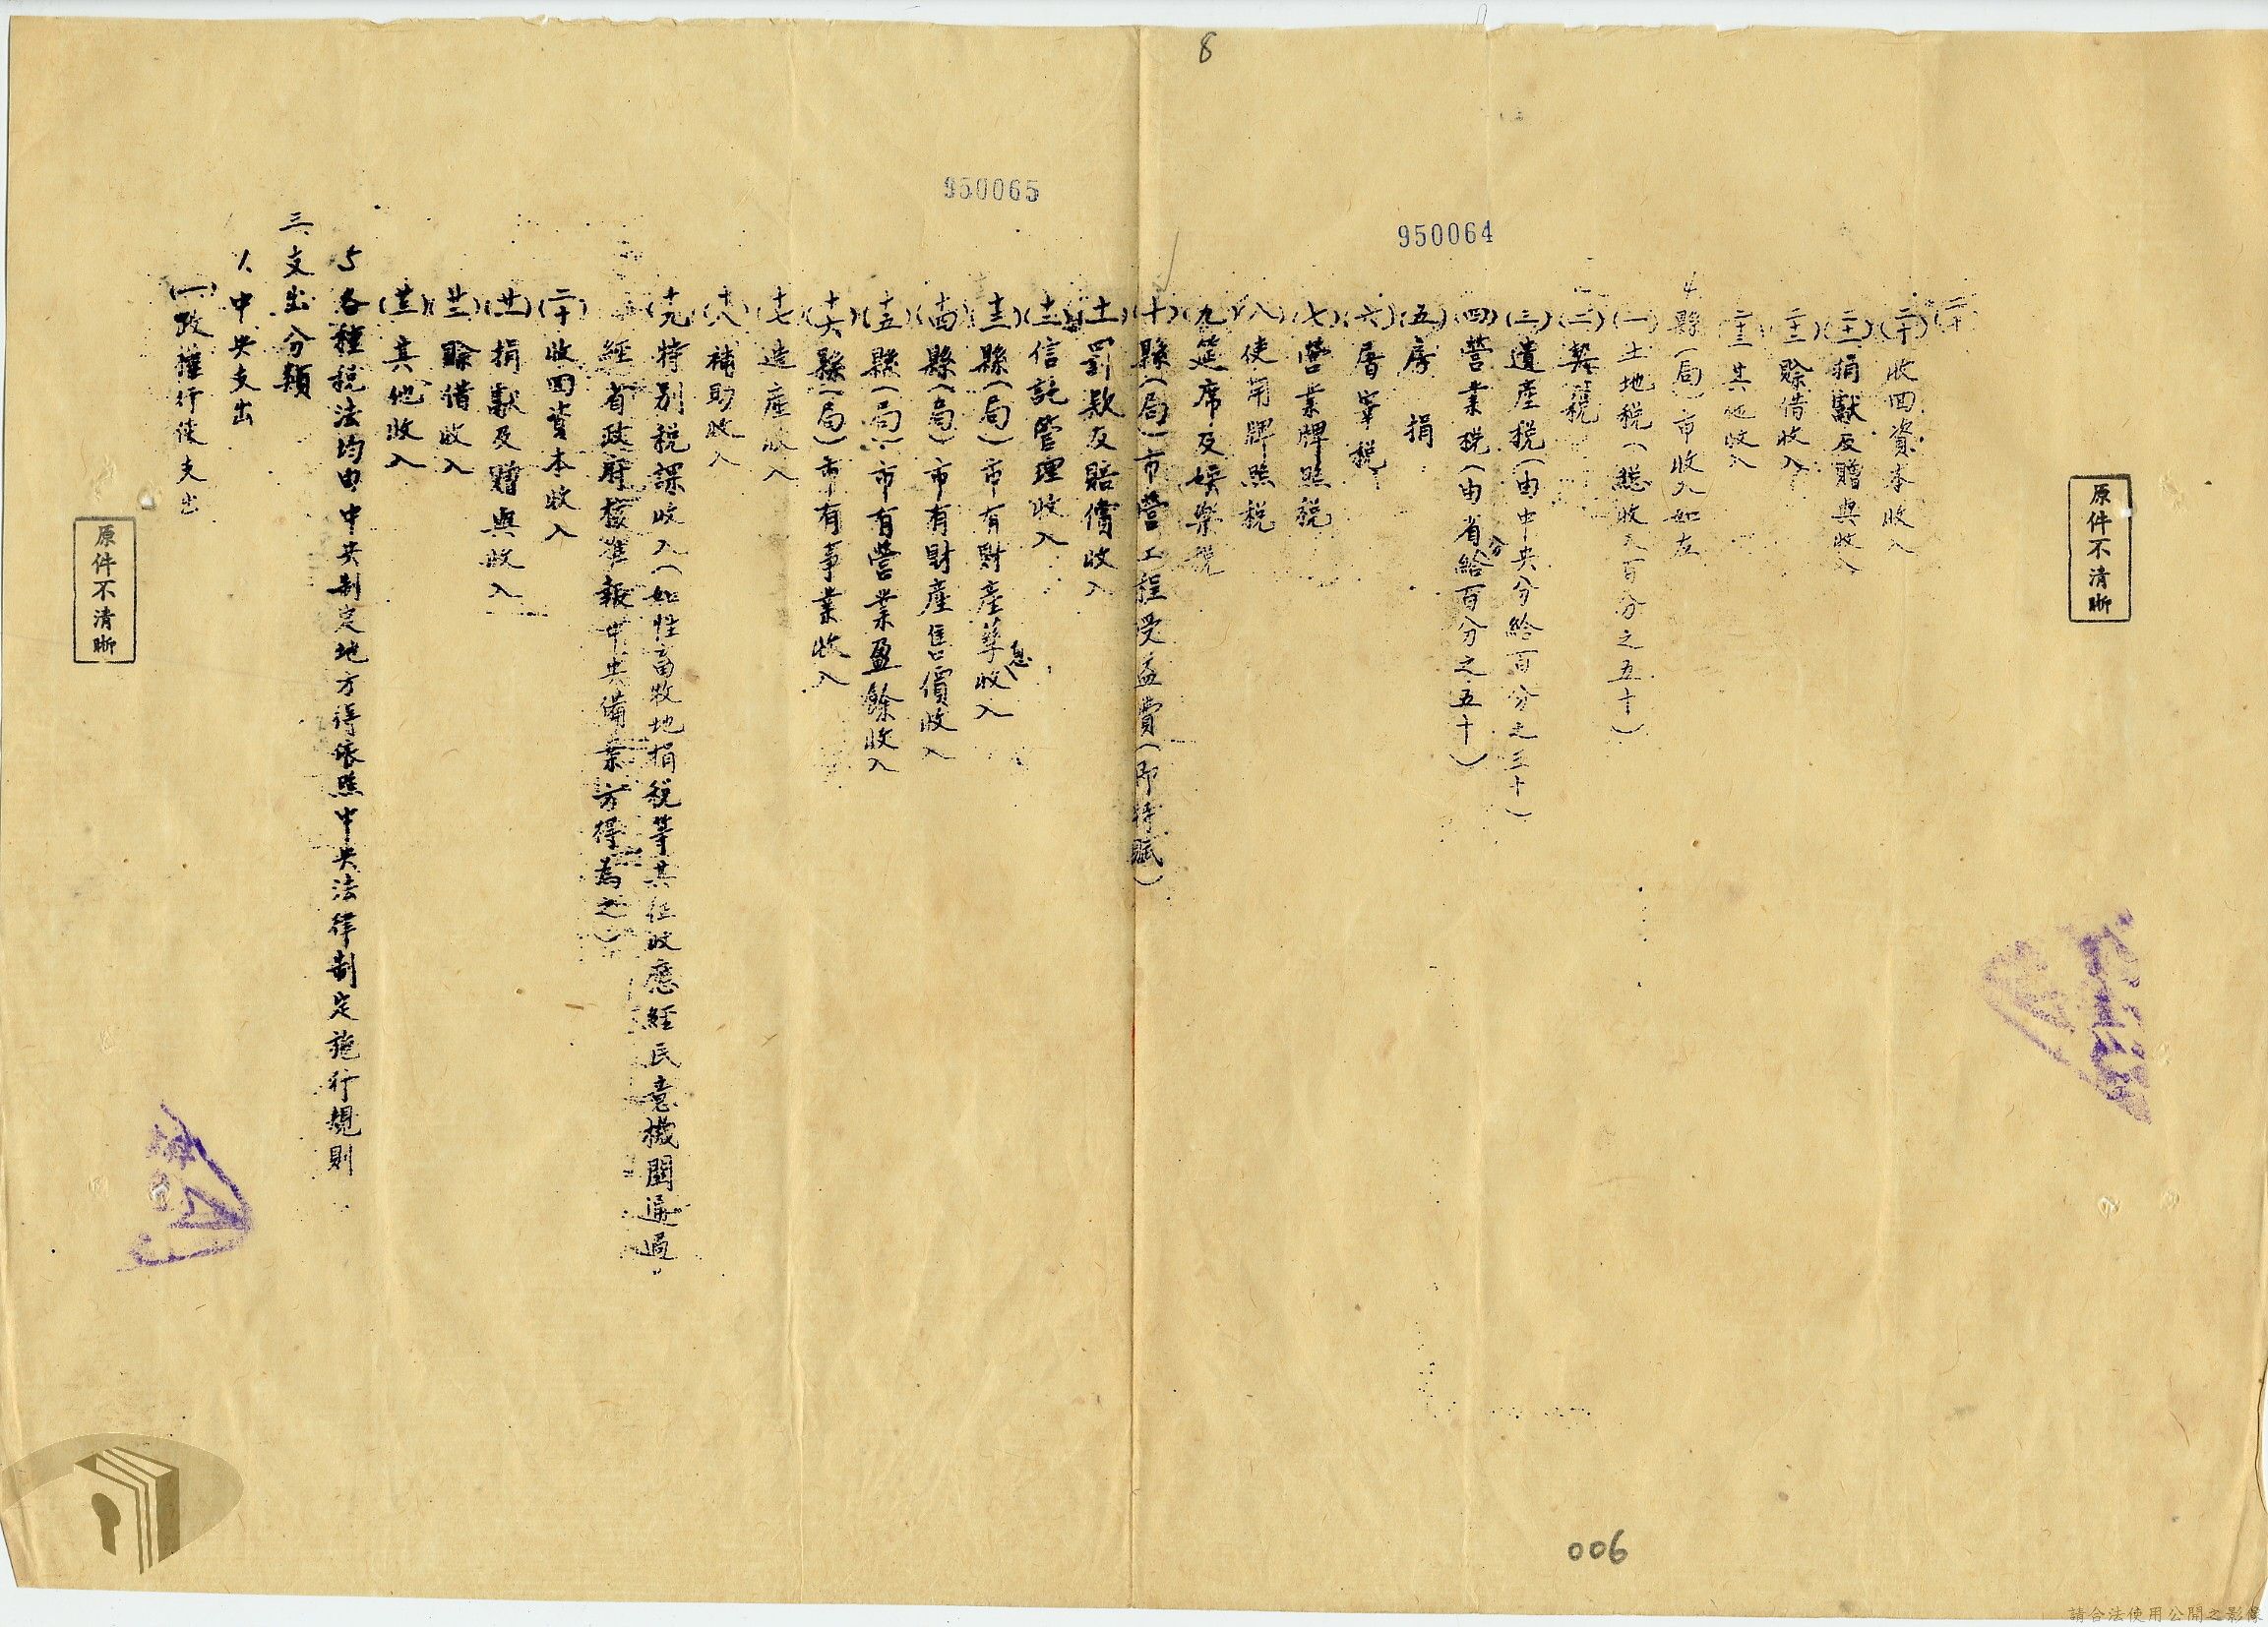 8
950064
950065
原件不清晰
(二十)
(二十)收回資本收入
(二十一)捐獻及贈與收入
(二十二)賒借收入
(二十三)其他收入
4.縣(局)市收入如左
(一)土地稅(總收入百分之五十)
(二)契稅
(三)遺產稅(由中央分給百分之三十)
(四)營業稅(由省分給百分之五十)
(五)房捐
(六)屠宰稅
(七)營業牌照稅
(八)使用牌照稅
(九)筵席及娛樂稅
(十)縣(局)市營工程受益費(即特賦)
(十一)罰款及賠償收入
(十二)信託管理收入
(十三)縣(局)市有財產孳息收入
(十四)縣(局)市有財產售價收入
(十五)縣(局)市有營業盈餘收入
(十六)縣(局)市有事業收入
(十七)造產收入
(十八)補助收入
(十九)特別稅課收入(如牲畜牧地捐稅等其征收應經民意機關通過,
經省政府核准報中央備案方得為之)
(二十)收回資本收入
(廿一)捐獻及贈與收入
(廿二)賒借收入
(廿三)其他收入
5各種稅法均由中央制定地方得依照中央法律制定施行規則
三、支出分類
1、中央支出
(一)政權行使支出
原件不清晰
006
請合法使用公開之影像